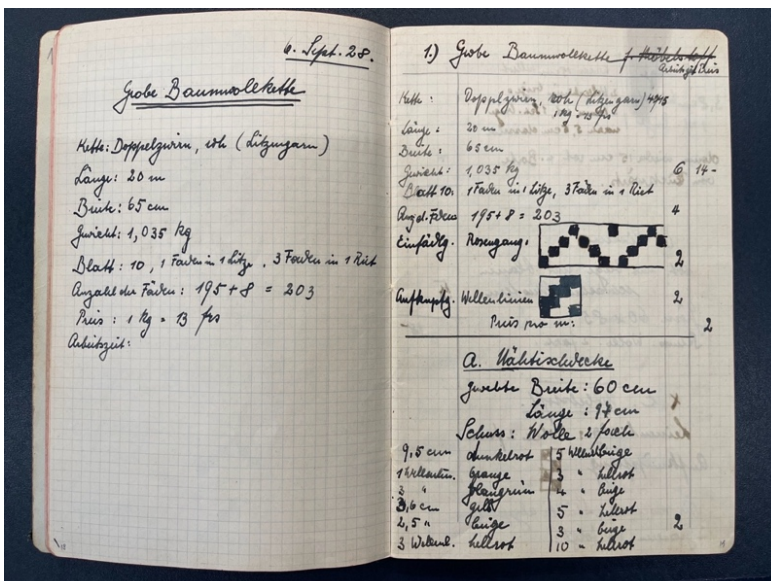 6. Sept. 28.
Grobe Baumwollkette
Kette: Doppelzwirn, roh (Litzengarn)
Länge: 20 m
Breite: 65 cm
Gewicht: 1,035 kg
Blatt: 10, 1 Faden in 1 Litze, 3 Faden in 1 Riet
Anzahl der Fäden: 195 + 8 = 203
Preis: 1 kg = 13 frs
Arbeitszeit:
1.) Grobe Baumwollkette f. Möbelstoff
Arbeitszeit Preis
Kette: Doppelzwirn, roh (Litzengarn)
1 kg = 13 frs
Länge: 20 m
Breite: 65 cm
Gewicht: 1,035 kg 6 14-
Blatt 10: 1 Faden in 1 Litze, 3 Fäden in 1 Riet
Anz. d. Fäden 195 + 8 = 203 4
Einfädlg. Rosengang. 2
Aufknüpfg. Wellenlinien 2
Preis pro m: 2
A. Nähtischdecke
gewebte Breite: 60 cm
Länge: 97 cm
Schuss: Wolle 2 fach
9,5 cm dunkelrot 5 Wellenl. beige
1 Wellenlin. orange 3 " hellrot
3 " blaugrün 4 " beige
3,6 cm gelb 5 " hellrot
2,5 " beige 3 " beige 2
3 Wellenl. hellrot 10 " hellrot